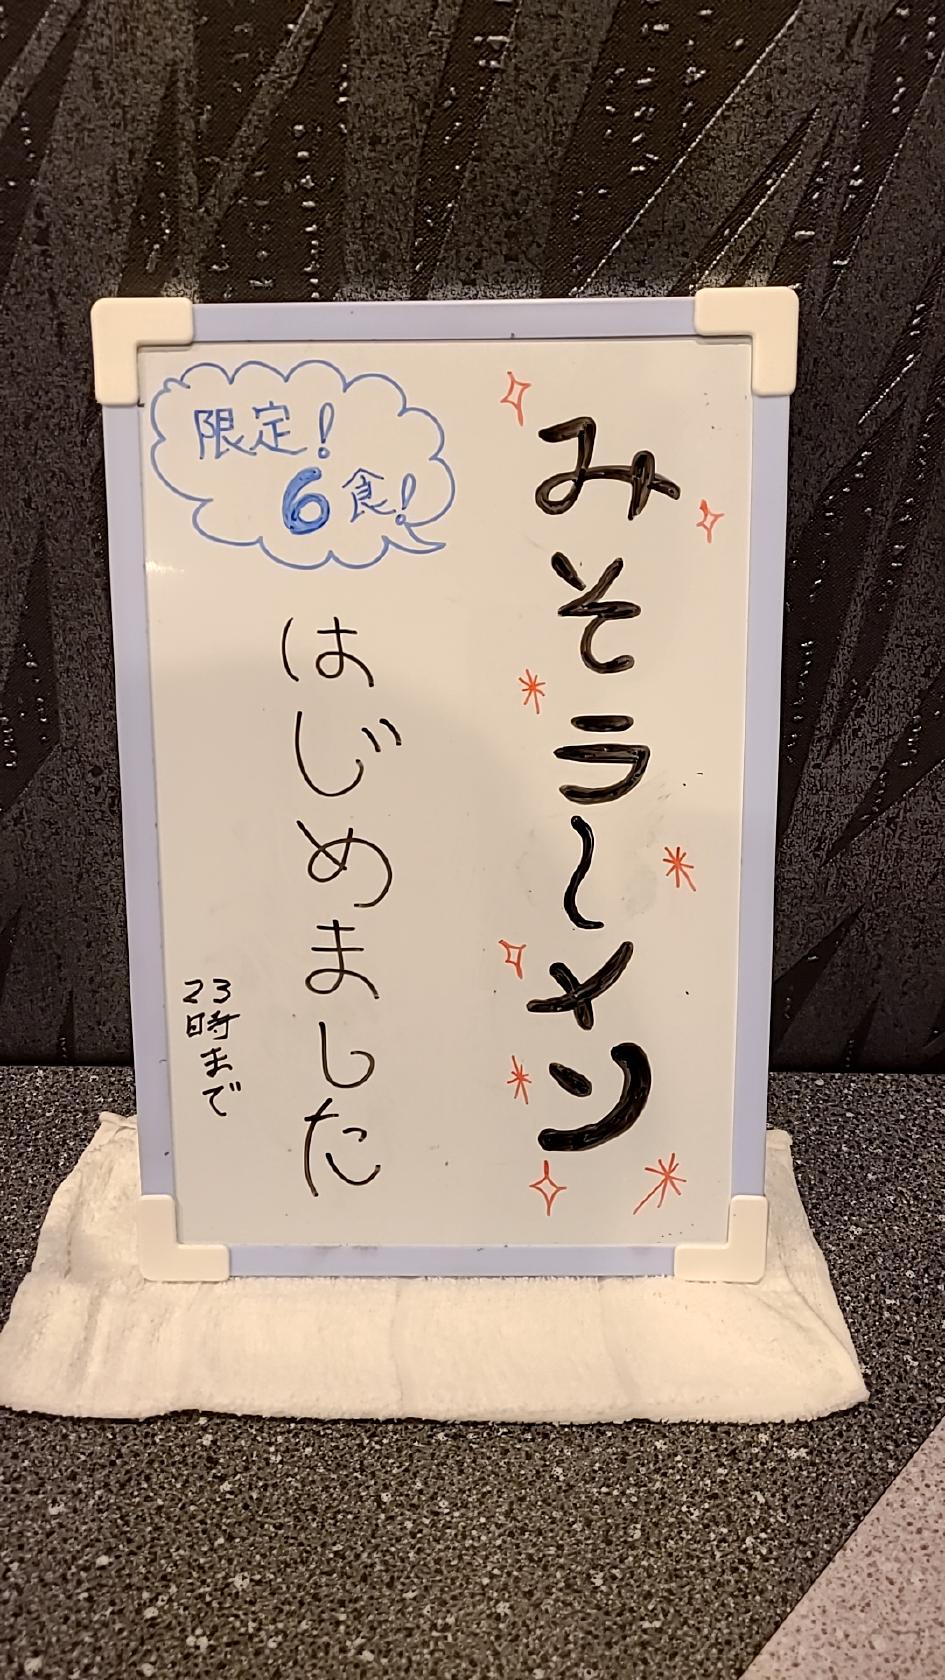 みそラ〜メン
はじめました
限定!
6食!
23
時まで